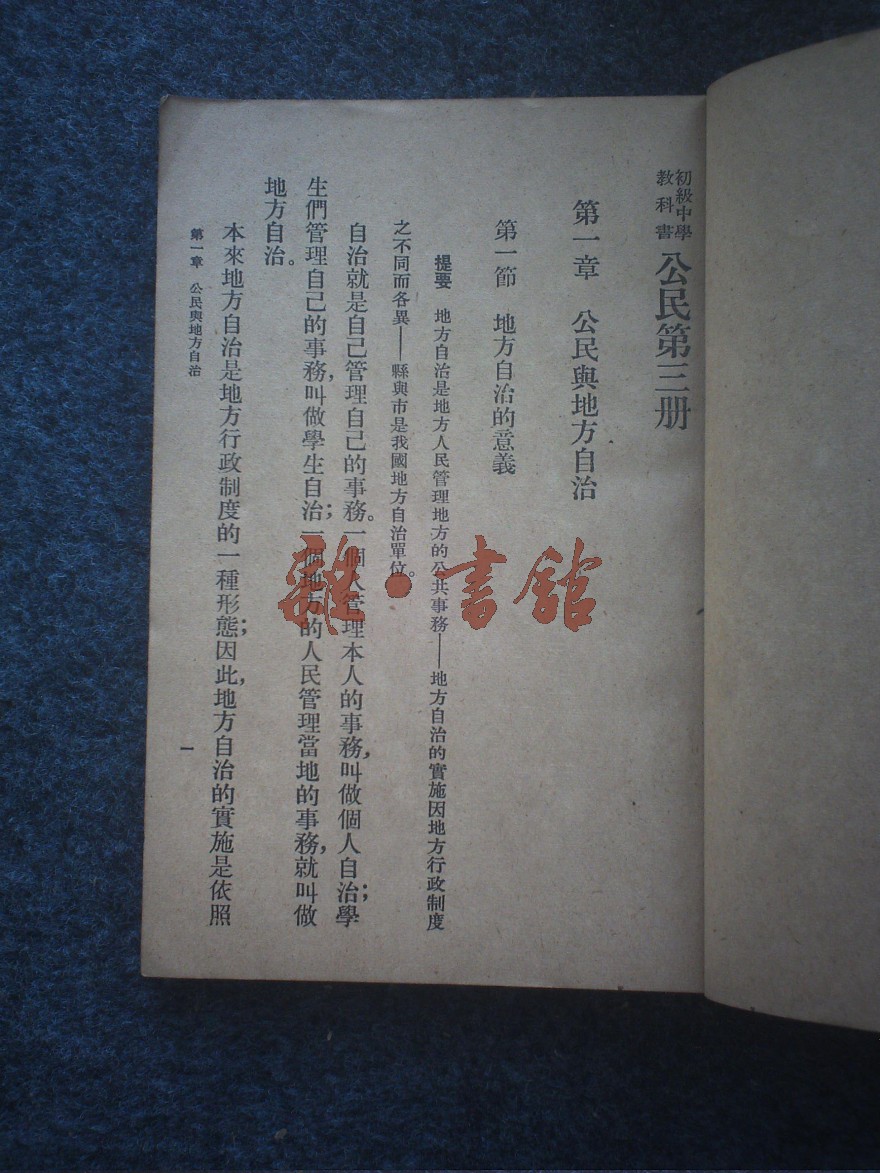 初級中學
教科書
公民第三册
第一章　公民與地方自治
第一節　地方自治的意義
提要　地方自治是地方人民管理地方的公共事務——地方自治的實施因地方行政制度
之不同而各異——縣與市是我國地方自治單位。
自治就是自己管理自己的事務。一個人管理本人的事務，叫做個人自治；學
生們管理自己的事務，叫做學生自治；一個地方的人民管理當地的事務，就叫做
地方自治。
本來地方自治是地方行政制度的一種形態；因此，地方自治的實施是依照
第一章　公民與地方自治
一
雜·書館